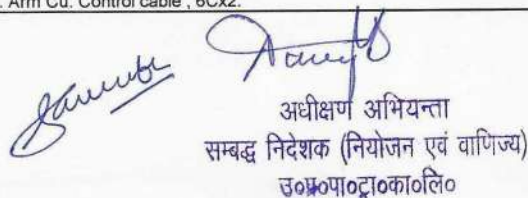 . Arm Cu. Control cable , 6Cx2.
अधीक्षण अभियन्ता
सम्बद्ध निदेशक (नियोजन एवं वाणिज्य)
उ०प्र०पा०ट्रा०का०लि०